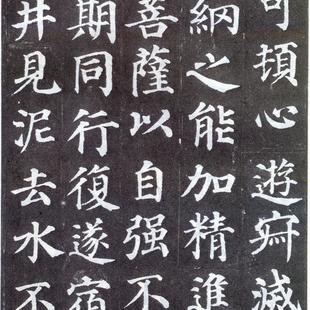 可頓心遊寂滅
網之能加精進
菩薩以自强不
期同行復遂宿
井見泥去水不